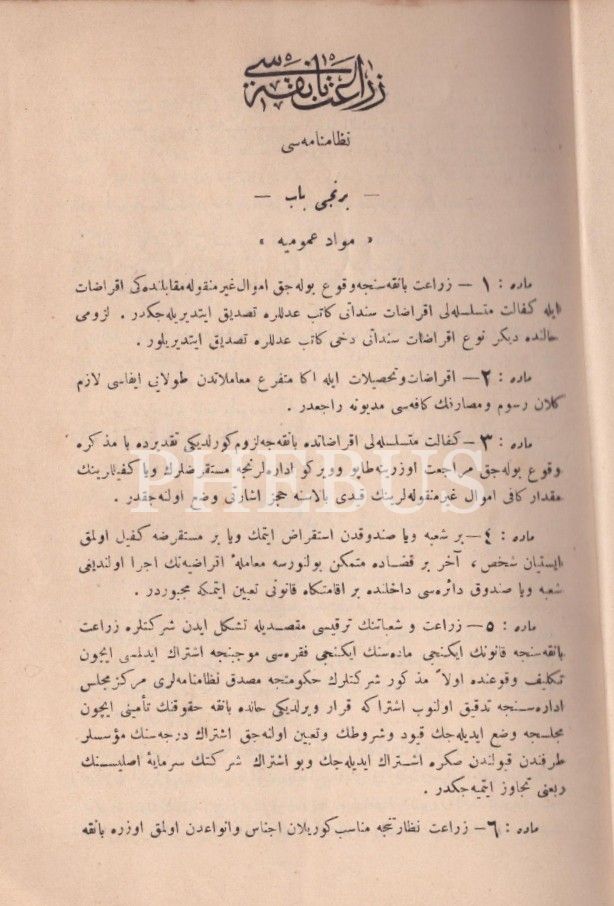 زراعت بانقه سی
نظامنامه سی
— برنجی باب —
« مواد عمومیه »
ماده : ١ — زراعت بانقه سنجه وقوع بوله جق اموال غیر منقوله مقابلنده کی اقراضات
ایله کفالت متسلسله لی اقراضات سنداتی کاتب عدللره تصدیق ایتدیریله جکدر . لزومی
حالنده دیکر نوع اقراضات سنداتی دخی کاتب عدللره تصدیق ایتدیریلور .
ماده : ٢ — اقراضات وتحصیلات ایله اکا متفرع معاملاتدن طولایی ایفاسی لازم
کلان رسوم ومصارفک کافه سی مدیونه راجعدر .
ماده : ٣ — کفالت متسلسله لی اقراضاتده بانقه جه لزوم کورلدیکی تقدیرده با مذکره
وقوع بوله جق مراجعت اوزرینه طاپو وویرکو اداره لرنجه مستقرضلرک ویا کفیللرینک
مقدار کافی اموال غیر منقوله لرینک قیدی بالاسنه حجز اشارتی وضع اولنه جقدر .
ماده : ٤ — بر شعبه ویا صندوقدن استقراض ایتمک ویا بر مستقرضه کفیل اولمق
ایستیان شخص ، آخر بر قضاده متمکن بولنورسه معاملهٔ اقراضیه نک اجرا اولندیغی
شعبه ویا صندوق دائره سی داخلنده بر اقامتکاه قانونی تعیین ایتمکه مجبوردر .
ماده : ٥ — زراعت و شعباتنک ترقیسی مقصدیله تشکل ایدن شرکتلره زراعت
بانقه سنجه قانونک ایکنجی ماده سنک ایکنجی فقره سی موجبنجه اشتراک ایدلمسی ایچون
تکلیف وقوعنده اولاً مذکور شرکتلرک حکومتجه مصدق نظامنامه لری مرکز مجلس
اداره سنجه تدقیق اولنوب اشتراکه قرار ویرلدیکی حالده بانقه حقوقنک تأمینی ایچون
مجلسجه وضع ایدیله جک قیود وشروطک وتعیین اولنه جق اشتراک درجه سنک مؤسسلر
طرفندن قبولندن صکره اشتراک ایدیله جک وبو اشتراک شرکتک سرمایهٔ اصلیسنک
ربعنی تجاوز ایتمیه جکدر .
ماده : ٦ — زراعت نظارتنجه مناسب کوریلان اجناس وانواعدن اولمق اوزره بانقه
PHEBUS